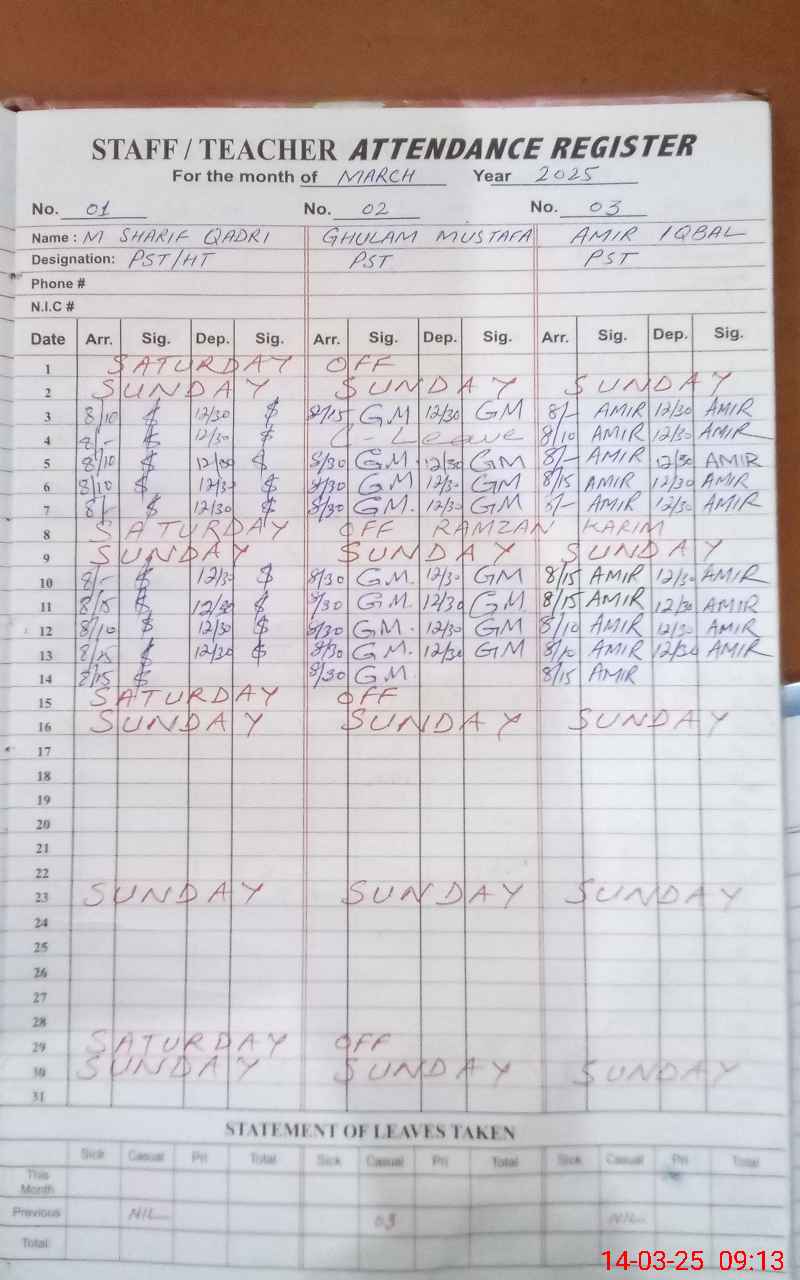 STAFF / TEACHER ATTENDANCE REGISTER
For the month of MARCH Year 2025
No. 01 No. 02 No. 03
Name : M SHARIF QADRI GHULAM MUSTAFA AMIR IQBAL
Designation: PST/HT PST PST
Phone #
N.I.C #
Date Arr. Sig. Dep. Sig. Arr. Sig. Dep. Sig. Arr. Sig. Dep. Sig.
1 SATURDAY OFF
2 SUNDAY SUNDAY SUNDAY
3 8/10 $ 12/30 $ 8/15 GM 12/30 GM 8/- AMIR 12/30 AMIR
4 8/- $ 12/30 $ C-Leave 8/10 AMIR 12/30 AMIR
5 8/10 $ $ 8/30 GM. 12/30 GM 8/- AMIR 12/30 AMIR
6 8/10 $ 12/30 $ 8/30 GM 12/30 GM 8/15 AMIR 12/30 AMIR
7 8/- $ 12/30 $ 8/30 GM. 12/30 GM 8/- AMIR 12/30 AMIR
8 SATURDAY OFF RAMZAN KARIM
9 SUNDAY SUNDAY SUNDAY
10 8/- $ 12/30 $ 8/30 G.M. 12/30 GM 8/15 AMIR 12/30 AMIR
11 8/15 $ 12/30 $ 8/30 GM. 12/30 GM 8/15 AMIR 12/30 AMIR
12 8/10 $ 12/30 $ 8/30 GM. 12/30 GM 8/10 AMIR 12/30 AMIR
13 8/15 $ 12/30 $ 8/30 G.M. 12/30 GM 8/10 AMIR 12/30 AMIR
14 8/15 $ 8/30 GM. 8/15 AMIR
15 SATURDAY OFF
16 SUNDAY SUNDAY SUNDAY
17
18
19
20
21
22
23 SUNDAY SUNDAY SUNDAY
24
25
26
27
28
29 SATURDAY OFF
30 SUNDAY SUNDAY SUNDAY
31
STATEMENT OF LEAVES TAKEN
Sick Casual Pri Total Sick Casual Pri Total Sick Casual Pri Total
This Month
Previous NIL 03 NIL
Total
14-03-25 09:13